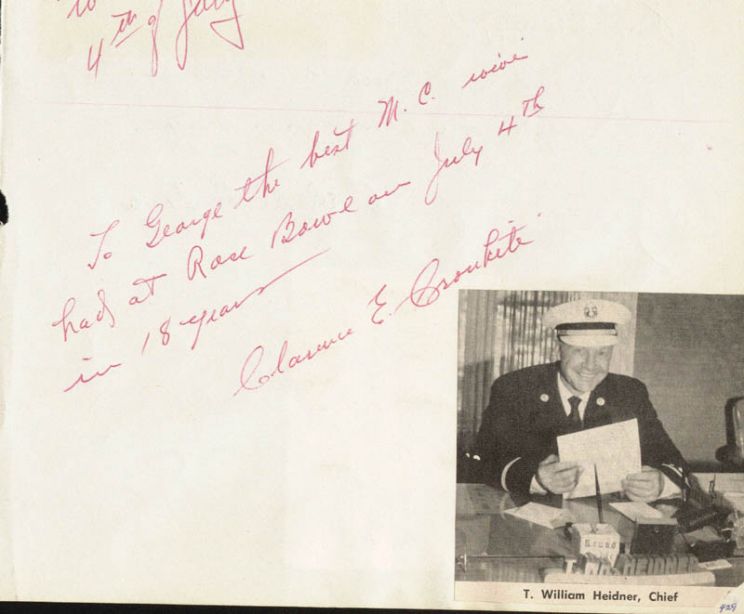 4th of July
To George the best M.C. wive
had at Rose Bowl on July 4th
in 18 years
Clarence E. Cronkite
T. WM. HEIDNER
T. William Heidner, Chief